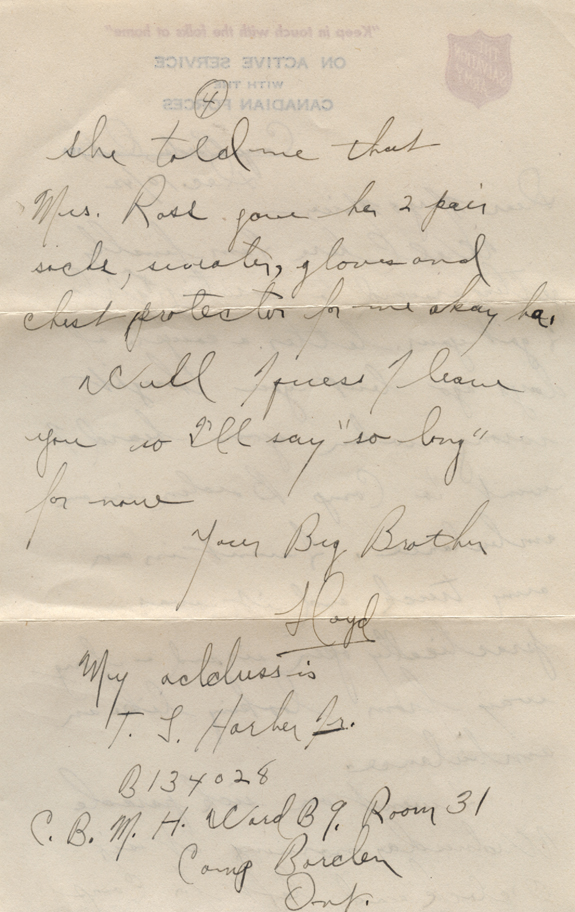 "Keep in touch with the folks at home"
ON ACTIVE SERVICE
WITH THE
CANADIAN FORCES
4
she told me that
Mrs. Rose gave her 2 pair
socks, sweater, gloves and
chest protector for me okay ha.
Well I guess I leave
you so I'll say "so long"
for now
Your Big Brother
Lloyd
My address is
T. L. Harber Jr.
B134028
C. B. M. H. Ward B9. Room 31
Camp Borden
Ont.